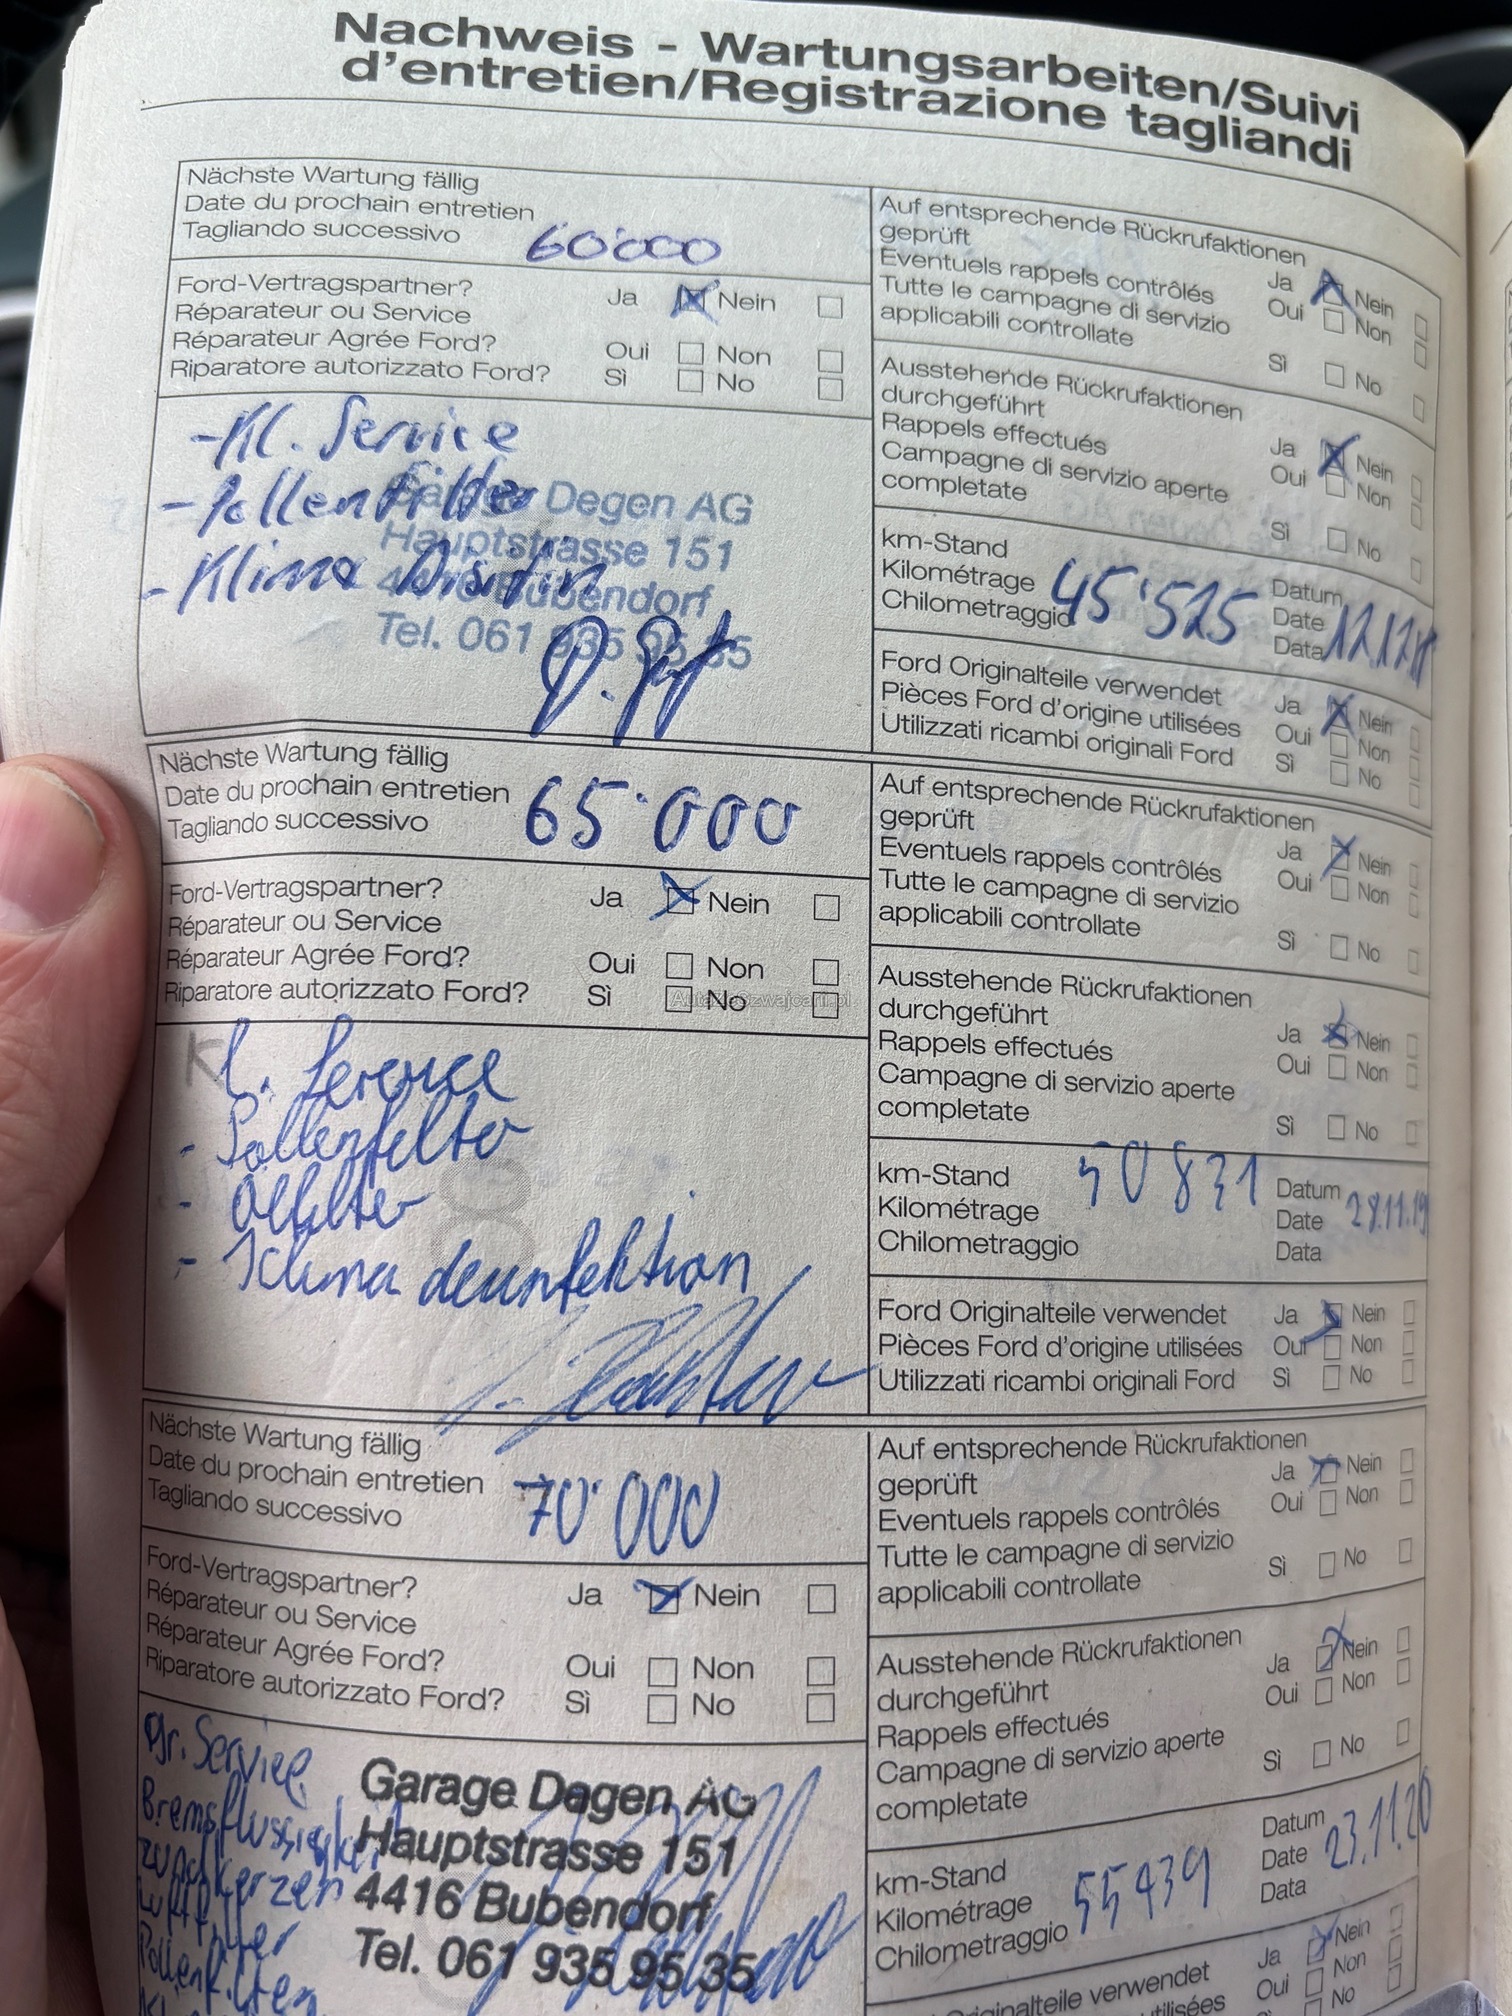 Nachweis - Wartungsarbeiten/Suivi
d'entretien/Registrazione tagliandi
Nächste Wartung fällig
Date du prochain entretien
Tagliando successivo 60'000
Ford-Vertragspartner? Ja Nein
Réparateur ou Service
Réparateur Agrée Ford? Oui Non
Riparatore autorizzato Ford? Sì No
- Kl. Service
- Pollenfilter
- Klima
Garage Degen AG
Hauptstrasse 151
4416 Bubendorf
Tel. 061 935 95 35
Auf entsprechende Rückrufaktionen
geprüft Ja Nein
Eventuels rappels contrôlés Oui Non
Tutte le campagne di servizio
applicabili controllate Sì No
Ausstehende Rückrufaktionen
durchgeführt Ja Nein
Rappels effectués Oui Non
Campagne di servizio aperte
completate Sì No
km-Stand Datum
Kilométrage 45'525 Date
Chilometraggio Data
Ford Originalteile verwendet Ja Nein
Pièces Ford d'origine utilisées Oui Non
Utilizzati ricambi originali Ford Sì No
Nächste Wartung fällig
Date du prochain entretien 65'000
Tagliando successivo
Ford-Vertragspartner? Ja Nein
Réparateur ou Service
Réparateur Agrée Ford? Oui Non
Riparatore autorizzato Ford? Sì No
Kl. Service
- Pollenfilter
- Ölfilter
- Klima
Auf entsprechende Rückrufaktionen
geprüft Ja Nein
Eventuels rappels contrôlés Oui Non
Tutte le campagne di servizio
applicabili controllate Sì No
Ausstehende Rückrufaktionen
durchgeführt Ja Nein
Rappels effectués Oui Non
Campagne di servizio aperte
completate Sì No
km-Stand 50831 Datum
Kilométrage Date 28.11.19
Chilometraggio Data
Ford Originalteile verwendet Ja Nein
Pièces Ford d'origine utilisées Oui Non
Utilizzati ricambi originali Ford Sì No
Nächste Wartung fällig
Date du prochain entretien 70'000
Tagliando successivo
Ford-Vertragspartner? Ja Nein
Réparateur ou Service
Réparateur Agrée Ford? Oui Non
Riparatore autorizzato Ford? Sì No
Gr. Service
Bremsflüssigkeit
Zündkerzen
Luftfilter
Pollenfilter
Garage Degen AG
Hauptstrasse 151
4416 Bubendorf
Tel. 061 935 95 35
Auf entsprechende Rückrufaktionen
geprüft Ja Nein
Eventuels rappels contrôlés Oui Non
Tutte le campagne di servizio
applicabili controllate Sì No
Ausstehende Rückrufaktionen
durchgeführt Ja Nein
Rappels effectués Oui Non
Campagne di servizio aperte
completate Sì No
km-Stand Datum
Kilométrage 55439 Date 23.11.20
Chilometraggio Data
Originalteile verwendet Ja Nein
utilisées Oui Non
No